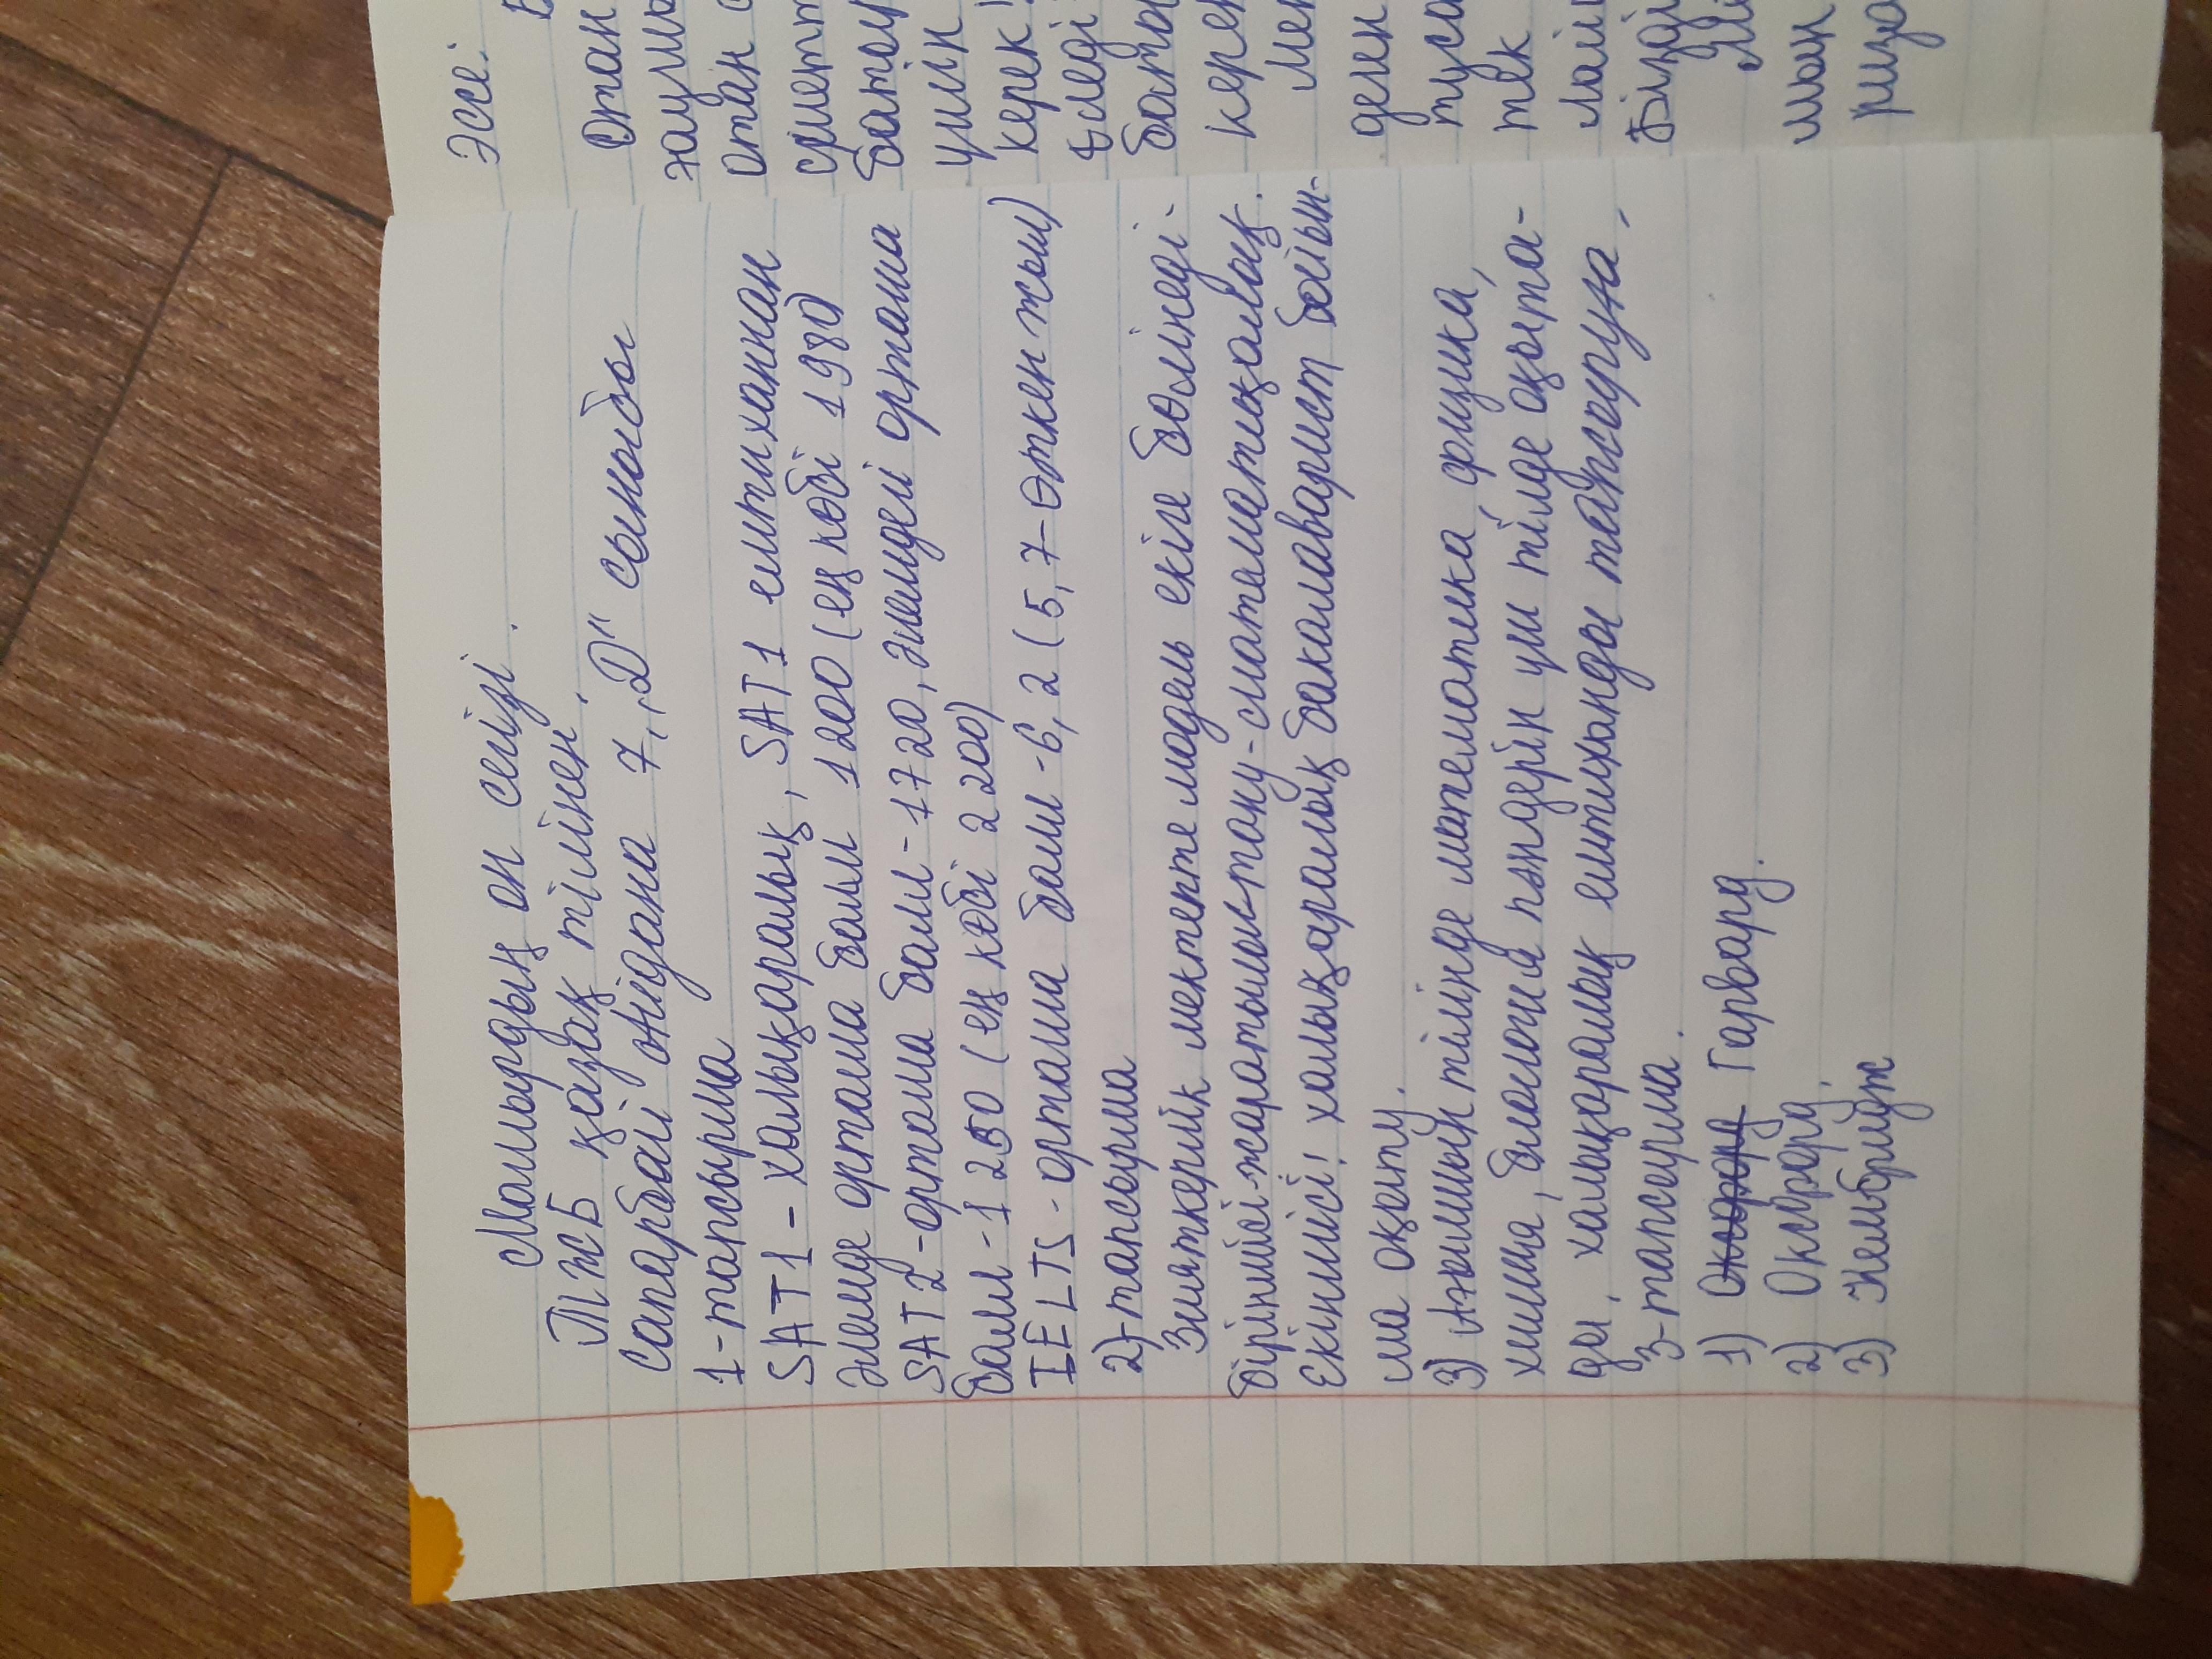 Мамырдың он сегізі.
ТЖБ қазақ тілінен.
Сапарбай Айдана 7 „Д" сыныбы
1-тапсырма
SAT1 - халықаралық, SAT1 емтиханнан
Әлемде орташа балл 1200 (ең көбі 1980)
SAT2 - ортама балл - 1720, Әлемдей орташа
балл - 1250 (ең көбі 2200)
IELTS - орташа балл - 6,2 (5,7-өткен жыл)
2)-тапсырма
Зияткерлік мектепте модель екіге бөлінеді.
біріншісі-жаратылыстану-математикалық.
Екіншісі: халықаралық бакалаврист бойын-
ша оқыту.
3) Ағылшын тілінде математика, физика,
химия, биология пәндерін үш тілде оқыта-
ды, халықаралық емтиханды тапсыруға,
3-тапсырма.
1) Гарвард.
2) Оксфорд,
3) Кембридж
Эссе:
Отан
отан
үшін
керек!
дейді
керек
Мен
деген
тек